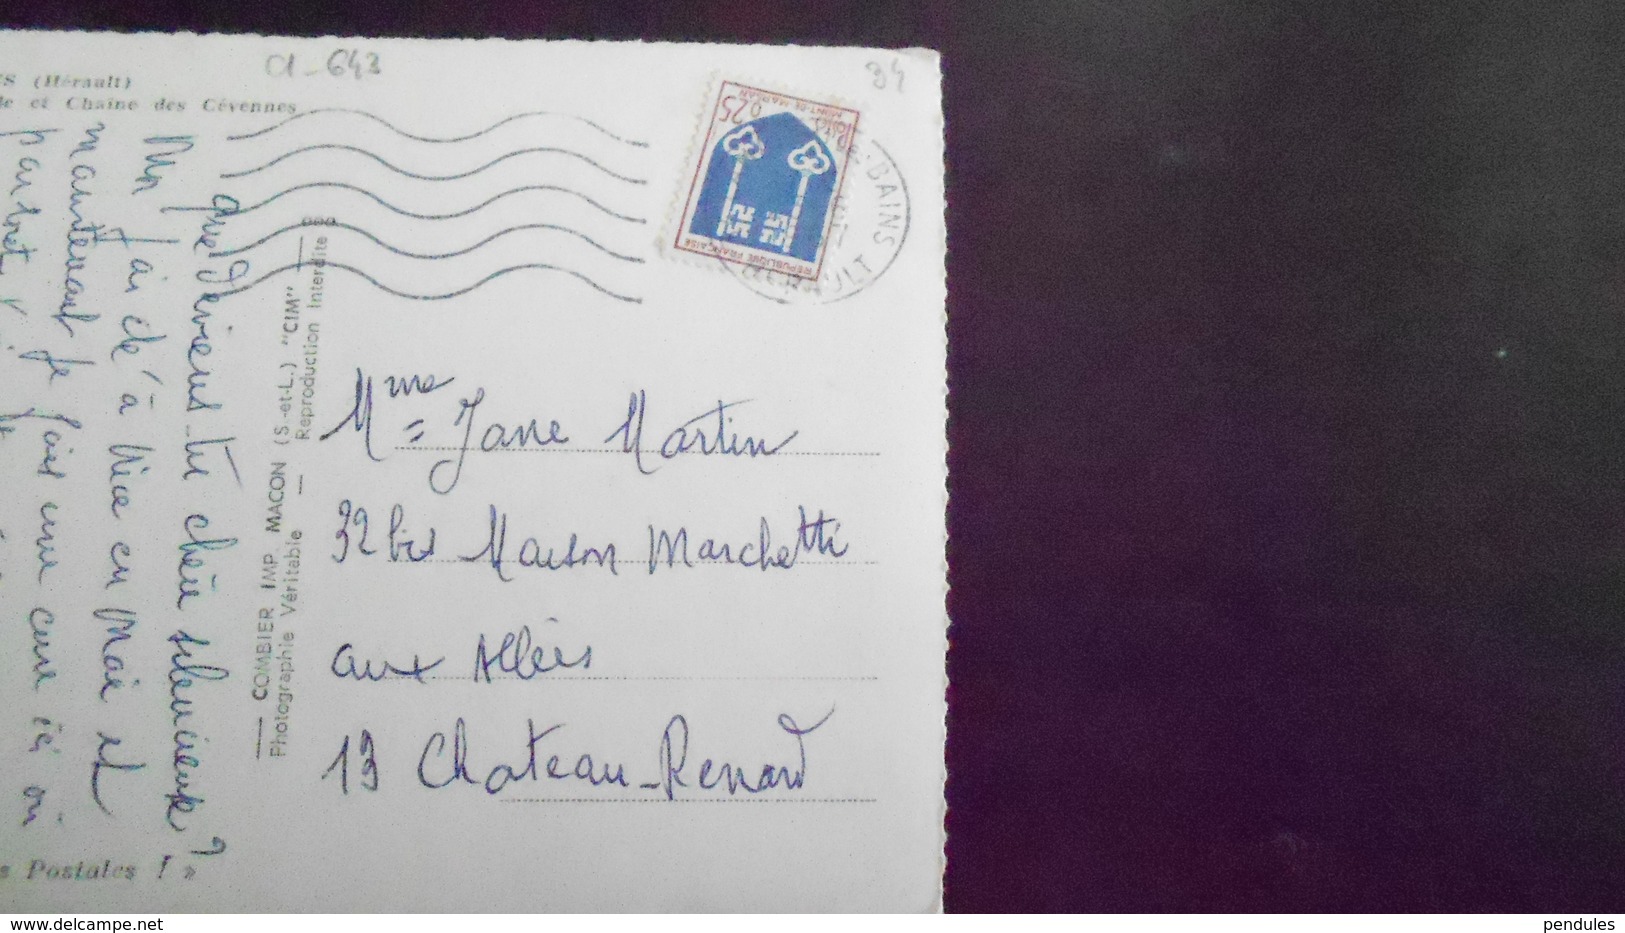 CI - 643
34
(Hérault)
et Chaîne des Cévennes
0,25
MONT-DE-MARSAN
REPUBLIQUE FRANÇAISE
BAINS
que deviens-tu chère silencieuse ?
J'ai été à Nice en Mai et
maintenant je fais une cure ici où
COMBIER IMP. MACON (S.-et-L.) "CIM"
Photographie Véritable — Reproduction Interdite
Mme Jane Martin
32 bis Maison Marchetti
aux Allées
13 Chateau-Renard
Postales ! »
delcampe.net
pendules